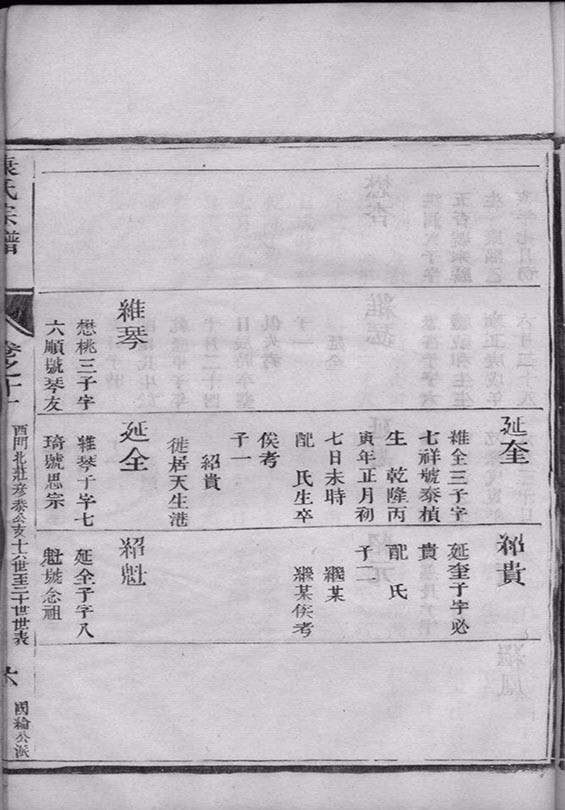 延奎
維全三子字
七祥號泰楨
生 乾隆丙
寅年正月初
七日未時
配 氏生卒
俟考
子一
紹貴
徙居天生港
紹貴
延奎子字必
貴
配 氏
子二
繼某
繼某俟考
維琴
懋桃三子字
六順號琴友
延全
維琴子字七
琦號思宗
紹魁
延全子字八
魁號念祖
袁氏宗譜
卷之十一
西門北莊彥恭公亥十六世至二十世世表
六
國綸公派